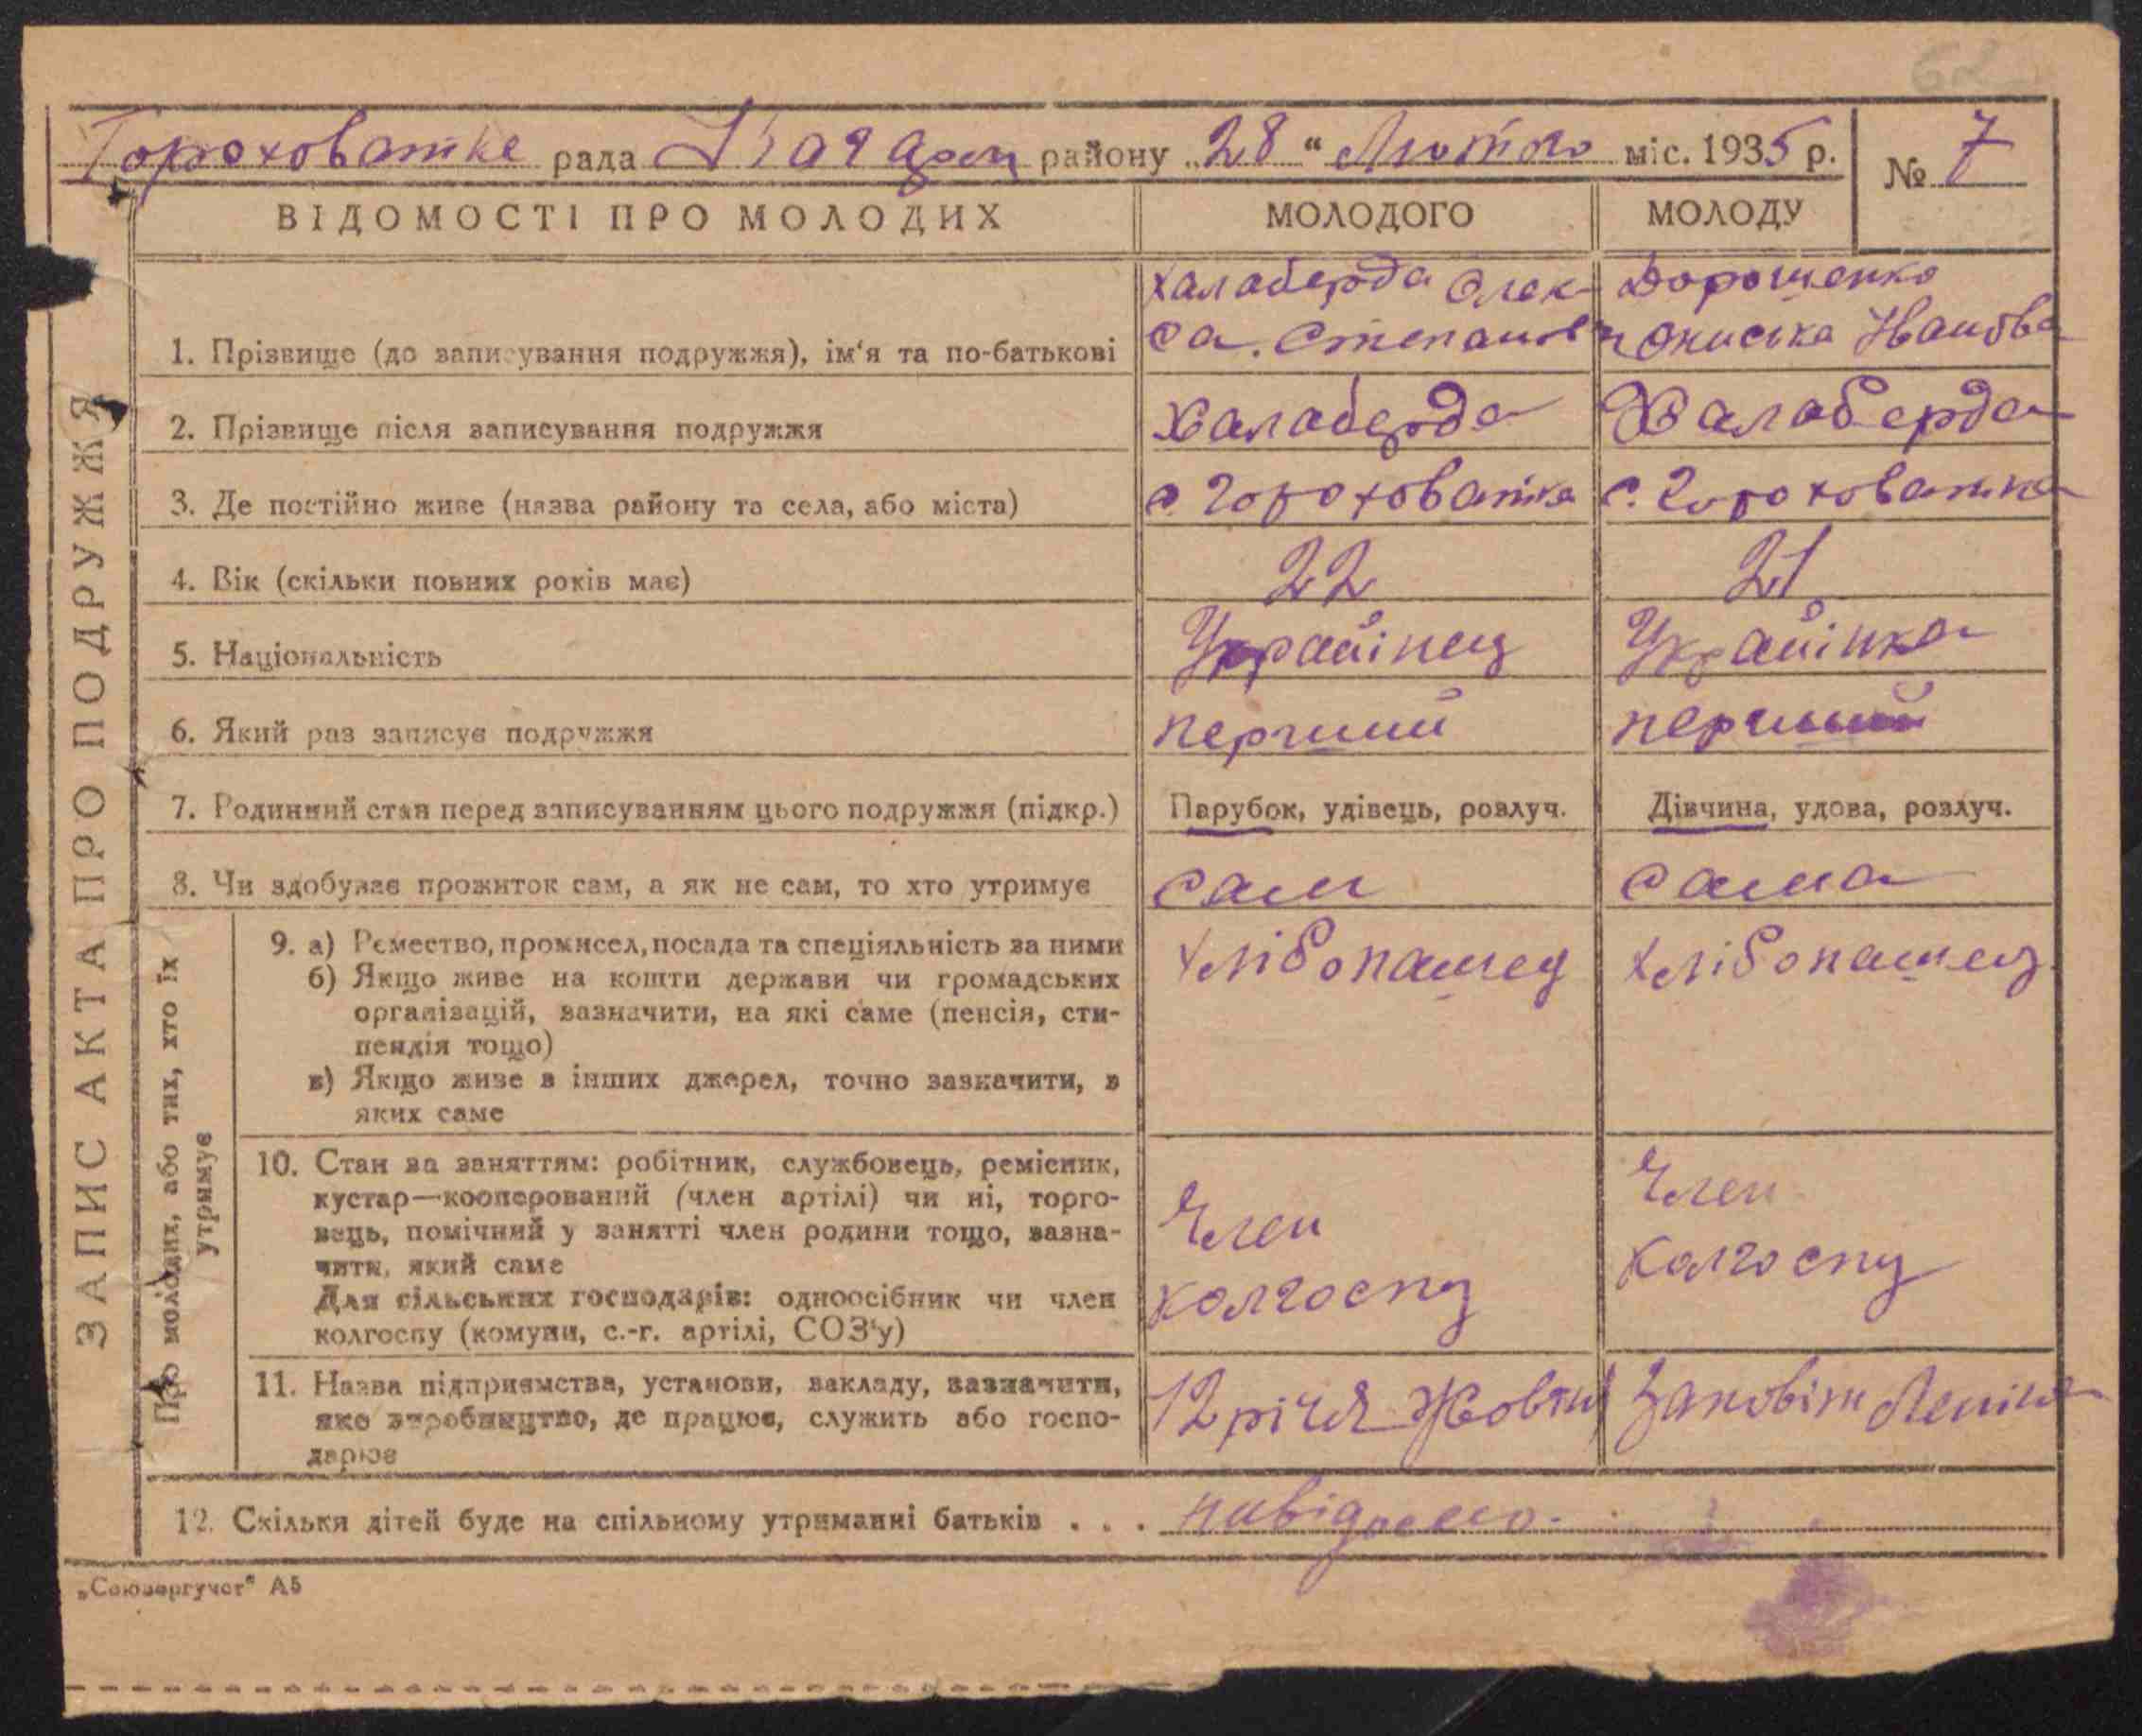 62
Горохованке рада Кагарл району „28“ Лютого міс. 1935 р. № 7
ВІДОМОСТІ ПРО МОЛОДИХ МОЛОДОГО МОЛОДУ
ЗАПИС АКТА ПРО ПОДРУЖЖЯ
Халаберда Олек- Дорошенко
1. Прізвище (до записування подружжя), ім'я та по-батькові са. Степанов Ониська Іванова
2. Прізвище після записування подружжя Халаберда Халаберда
3. Де постійно живе (назва району та села, або міста) с. Гороховатка с. Гороховатка
4. Вік (скільки повних років має) 22 21
5. Національність Українец Українка
6. Який раз записує подружжя перший перший
7. Родинний стан перед записуванням цього подружжя (підкр.) Парубок, удівець, розлуч. Дівчина, удова, розлуч.
8. Чи здобуває прожиток сам, а як не сам, то хто утримує сам сама
Про молодих, або тих, хто їх
утримує
9. а) Ремество, промисел, посада та спеціяльність за ними хлібопашец хлібопашец
б) Якщо живе на кошти держави чи громадських
організацій, зазначити, на які саме (пенсія, сти-
пендія тощо)
в) Якщо живе з інших джерел, точно зазначити, з
яких саме
10. Стан за заняттям: робітник, службовець, ремісник,
кустар—кооперований (член артілі) чи ні, торго-
вець, помічний у занятті член родини тощо, зазна- Член Член
чити, який саме
Для сільських господарів: одноосібник чи член колгоспу колгоспу
колгоспу (комуни, с.-г. артілі, СОЗ'у)
11. Назва підприємства, установи, закладу, зазначити, 12 річя Жовтн Заповіти Леніна
яке виробництво, де працює, служить або госпо-
дарює
12. Скільки дітей буде на спільному утриманні батьків . . . нивідомо.
„Союзоргучет“ А5